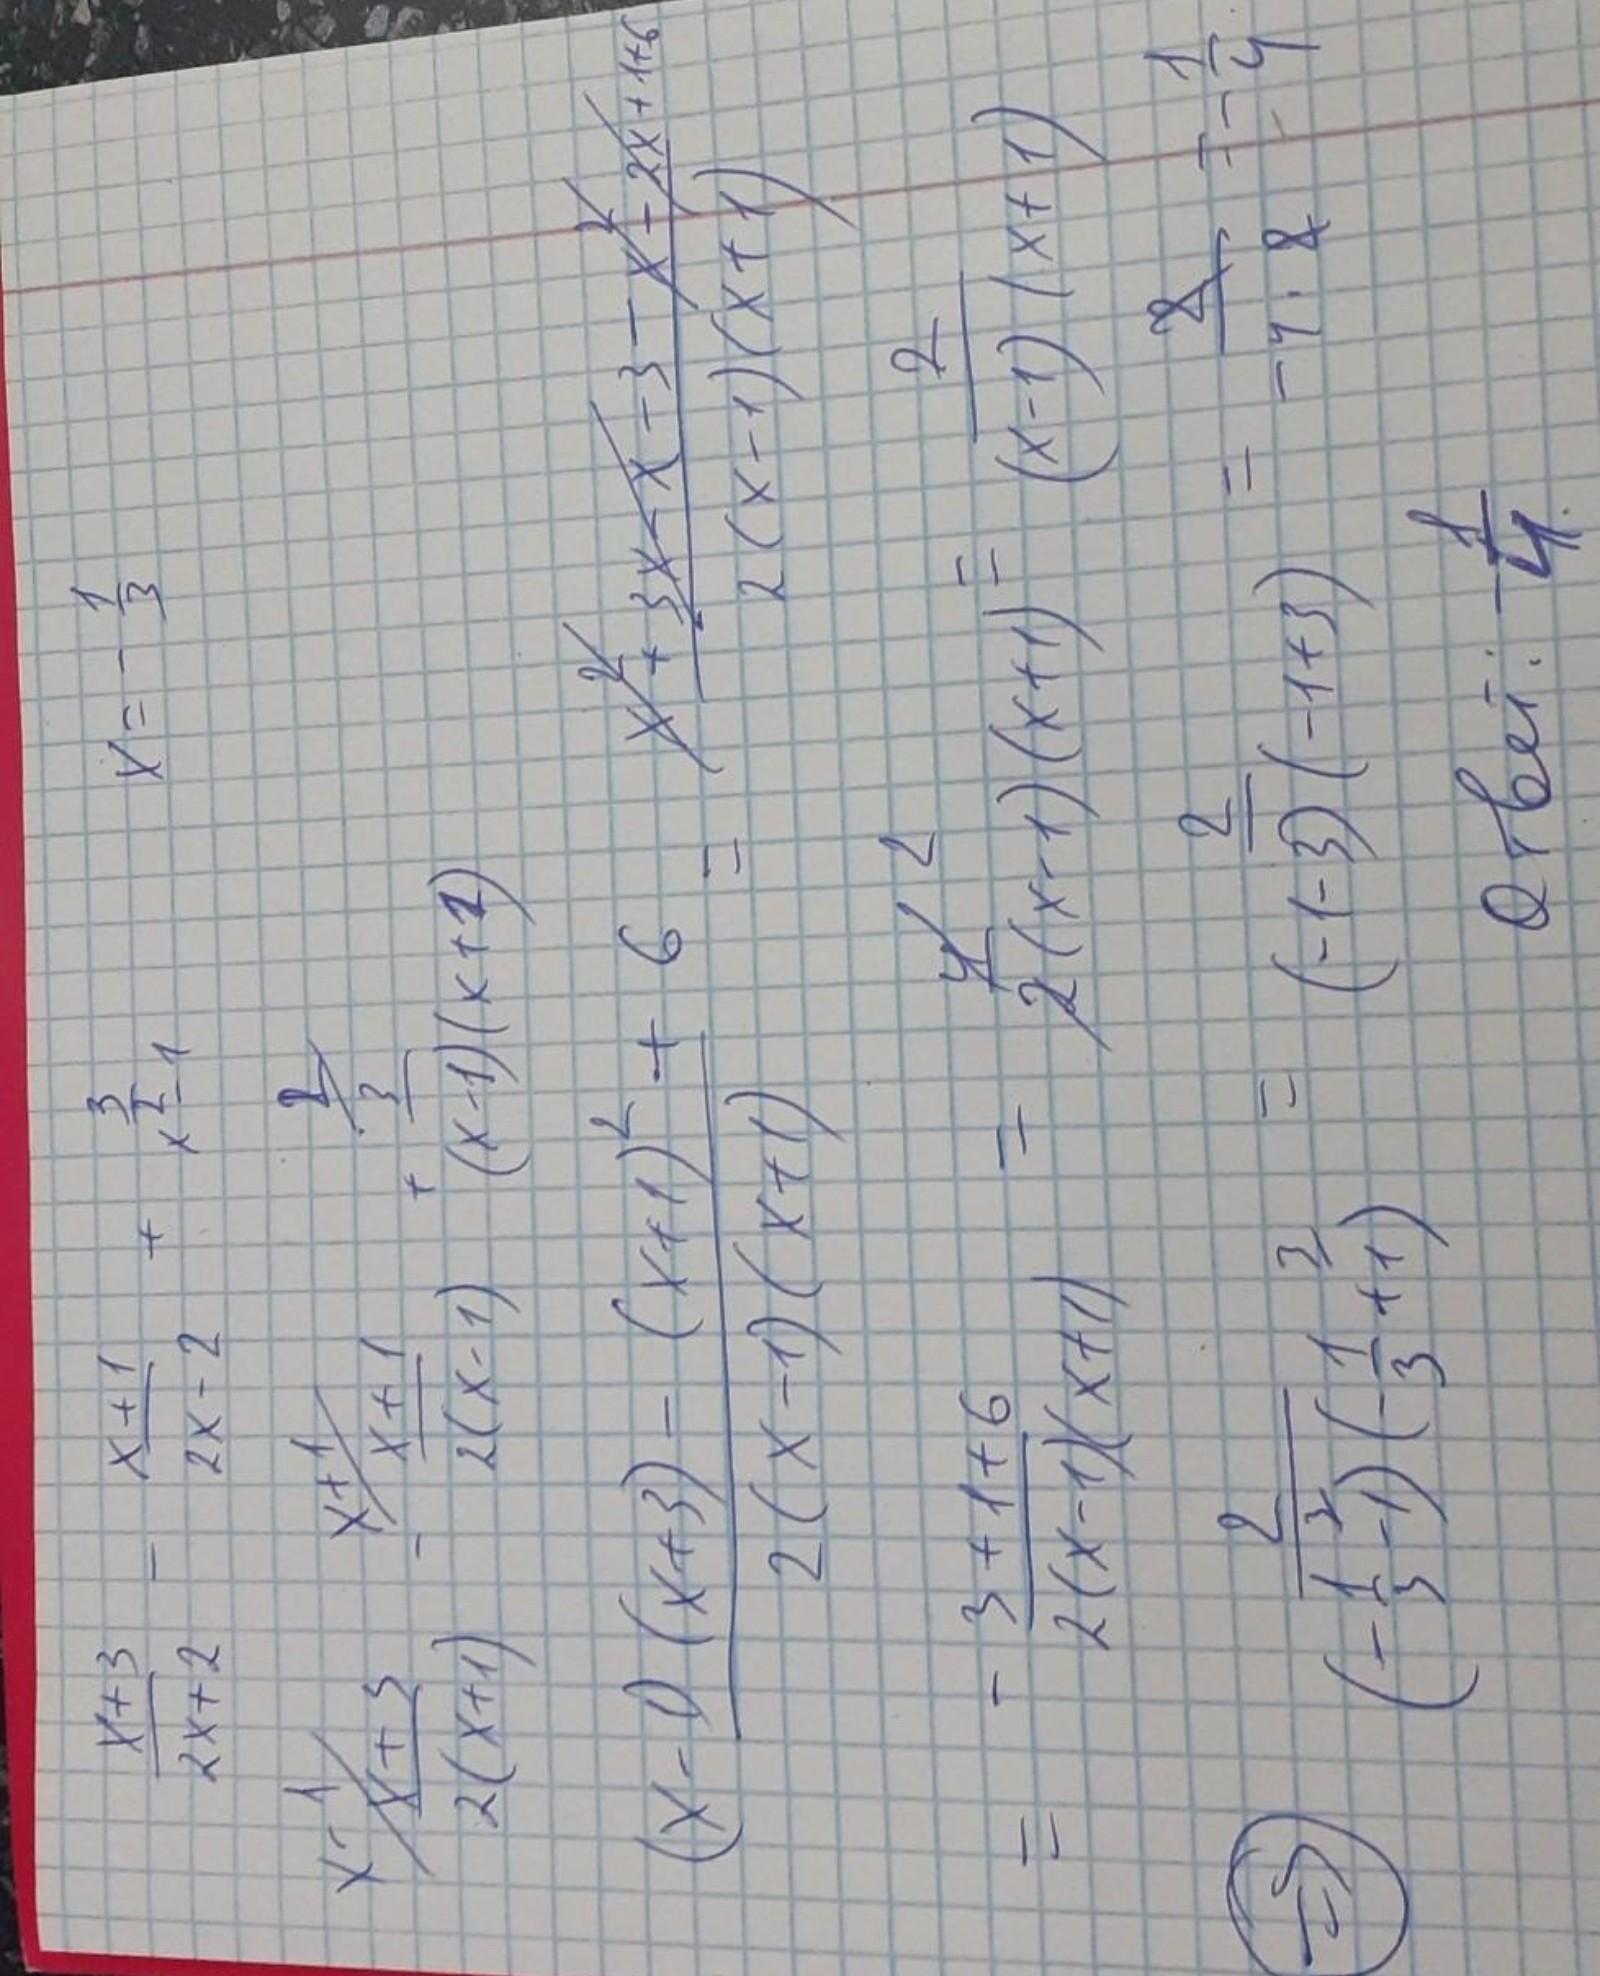 (x+3)/(2x+2) - (x+1)/(2x-2) + 3/(x²-1) x = -1/3
x-1/ (x+3)/(2(x+1)) - x+1/ (x+1)/(2(x-1)) + 2/ 3/((x-1)(x+1))
((x-1)(x+3) - (x+1)² + 6)/(2(x-1)(x+1)) = (x² + 3x - x - 3 - x² - 2x + 1+6)/(2(x-1)(x+1))
= (-3+1+6)/(2(x-1)(x+1)) = 4 2/(2(x-1)(x+1)) = 2/((x-1)(x+1))
= 2/((-1/3-1)(-1/3+1)) = 2/((-1-3)(-1+3)) = 2/(-4·2) = -1/4
Ответ: -1/4.